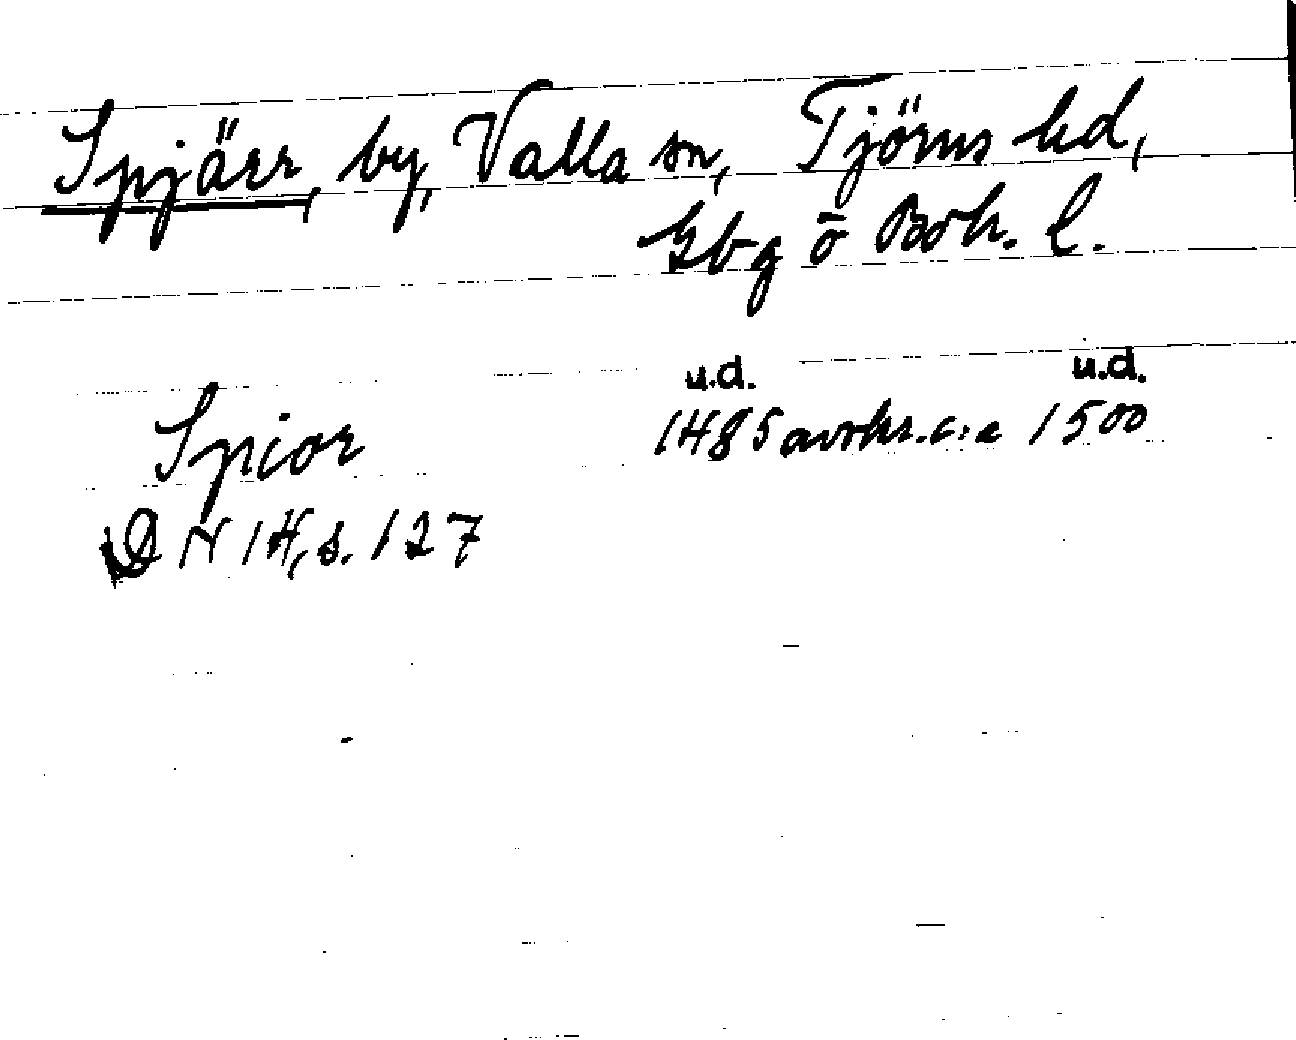 Spjärr, by, Valla sn, Tjörns hd,
Gbg o Boh. l.
u.d. u.d.
Spior 1485 avskr. c:a 1500
DN 14, s. 127